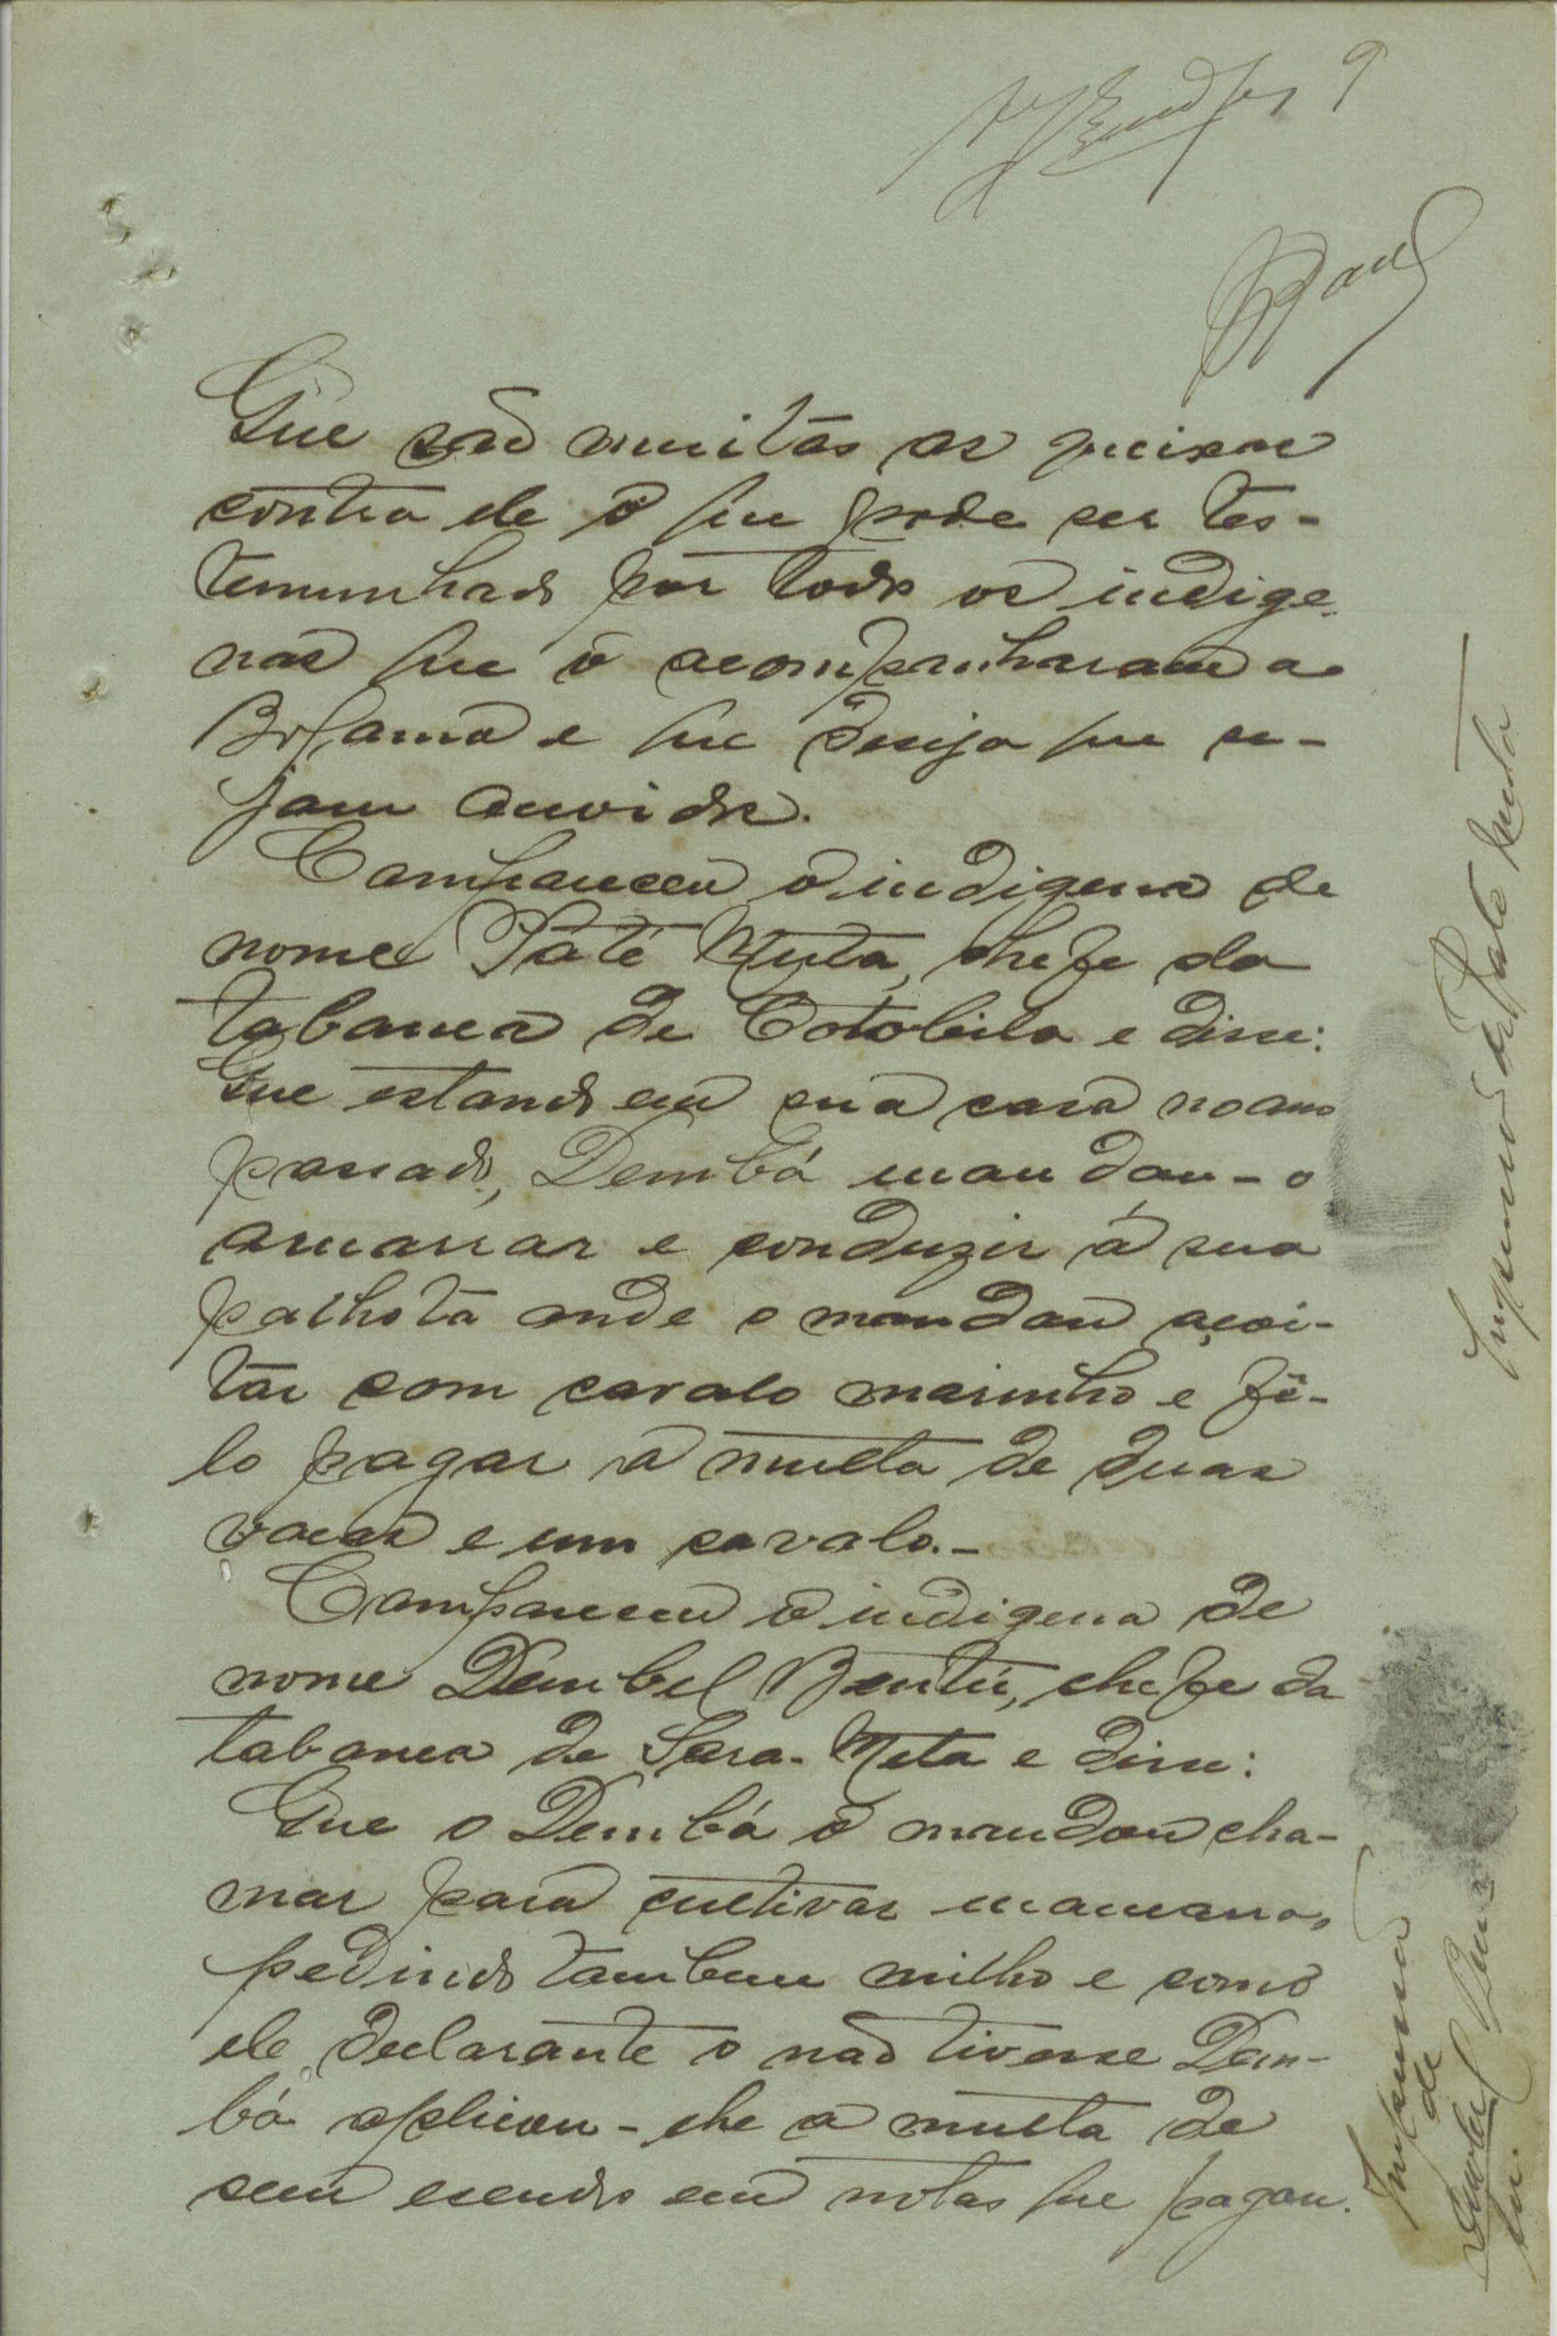 9
Que são muitas as queixas
contra ele o que pode ser tes-
temunhado por todos os indige-
nas que o acompanharam a
Bolama e que deseja que se-
jam ouvidos.
Compareceu o indigena de
nome Paté Muta, chefe da
tabanca de Cotobila e disse:
Que estando em sua casa no ano
passado, Dembá mandou-o
amarrar e conduzir á sua
palhota onde o mandou açoi-
tar com cavalo marinho e fê-
lo pagar a multa de duas
vacas e um cavalo.-
Compareceu o indigena de
nome Dembel Bentú, chefe da
tabanca de Sara-Meta e disse:
Que o Dembá o mandou cha-
mar para cultivar mancarra,
pedindo tambem milho e como
ele declarante o não tivesse Dem-
bá aplicou-lhe a multa de
cem escudos em notas que pagou.
Impressão de Paté Muta
Impressão
de
Dembel Ben
tú.